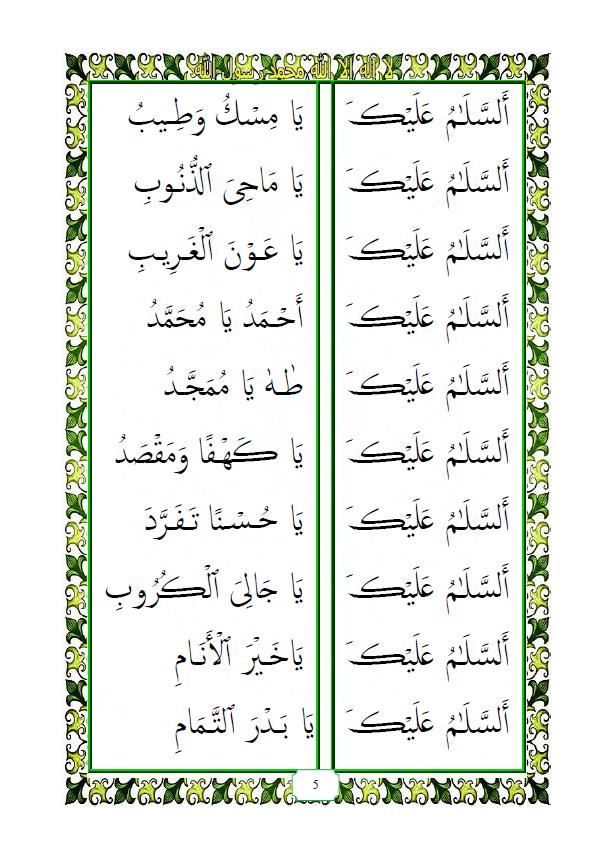 لا اله الا الله محمد رسول الله
أَلسَّلَامُ عَلَيْكَ يَا مِسْكُ وَطِيبُ
أَلسَّلَامُ عَلَيْكَ يَا مَاحِىَ ٱلذُّنُوبِ
أَلسَّلَامُ عَلَيْكَ يَا عَوْنَ ٱلْغَرِيبِ
أَلسَّلَامُ عَلَيْكَ أَحْمَدُ يَا مُحَمَّدُ
أَلسَّلَامُ عَلَيْكَ طٰهٰ يَا مُمَجَّدُ
أَلسَّلَامُ عَلَيْكَ يَا كَهْفًا وَمَقْصَدُ
أَلسَّلَامُ عَلَيْكَ يَا حُسْنًا تَفَرَّدَ
أَلسَّلَامُ عَلَيْكَ يَا جَالِىَ ٱلْكُرُوبِ
أَلسَّلَامُ عَلَيْكَ يَاخَيْرَ ٱلْأَنَامِ
أَلسَّلَامُ عَلَيْكَ يَا بَدْرَ ٱلتَّمَامِ
5